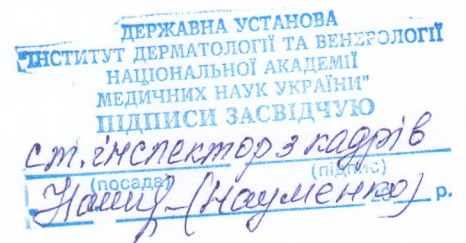 ДЕРЖАВНА УСТАНОВА
"ІНСТИТУТ ДЕРМАТОЛОГІЇ ТА ВЕНЕРОЛОГІЇ
НАЦІОНАЛЬНОЇ АКАДЕМІЇ
МЕДИЧНИХ НАУК УКРАЇНИ"
ПІДПИСИ ЗАСВІДЧУЮ
ст. інспектор з кадрів
(посада) (підпис)
(Науменко) 20 р.